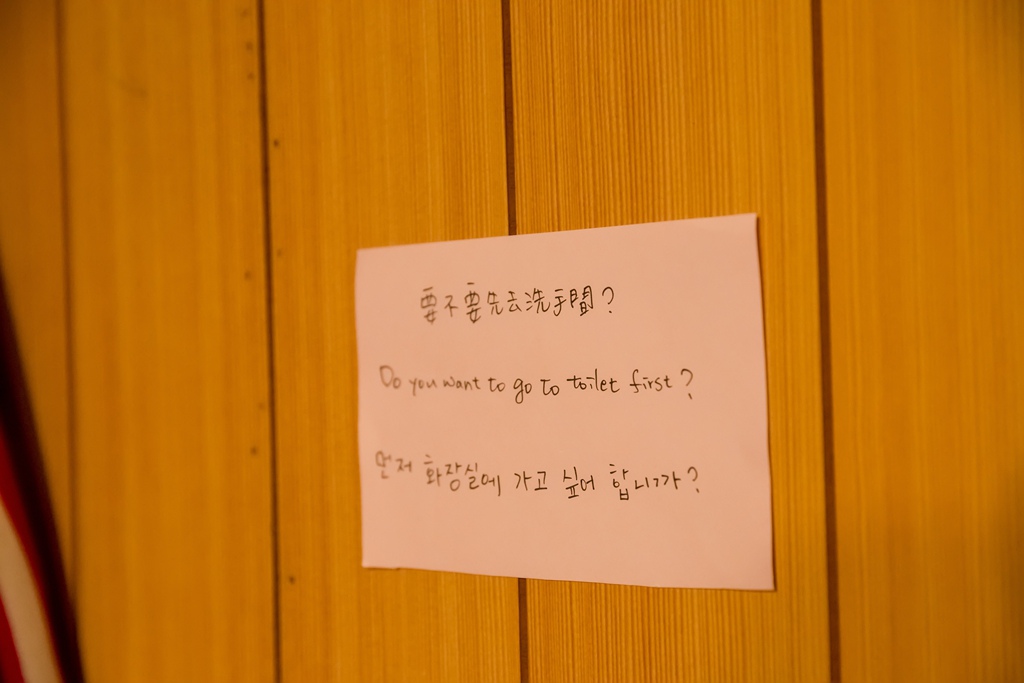 要不要先去洗手間?
Do you want to go to toilet first?
먼저 화장실에 가고 싶어 합니까?